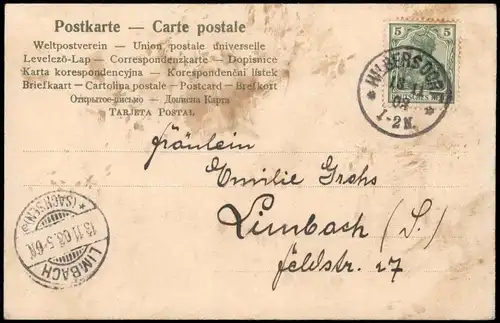 Postkarte — Carte postale
Weltpostverein — Union postale universelle
Levelező-Lap — Correspondenzkarte — Dopisnice
Karta korespondencyjna — Korespondenční lístek
Briefkaart — Cartolina postale — Postcard — Brefkort
Открытое письмо — Дописна Карта
TARJETA POSTAL
5 5
* HILBERSDORF *
13 11
03
1-2N.
Fräulein
Emilie Grohs
Limbach (S.)
Feldstr. 27
* (SACHSEN) *
13.11.03. 5-6N.
LIMBACH